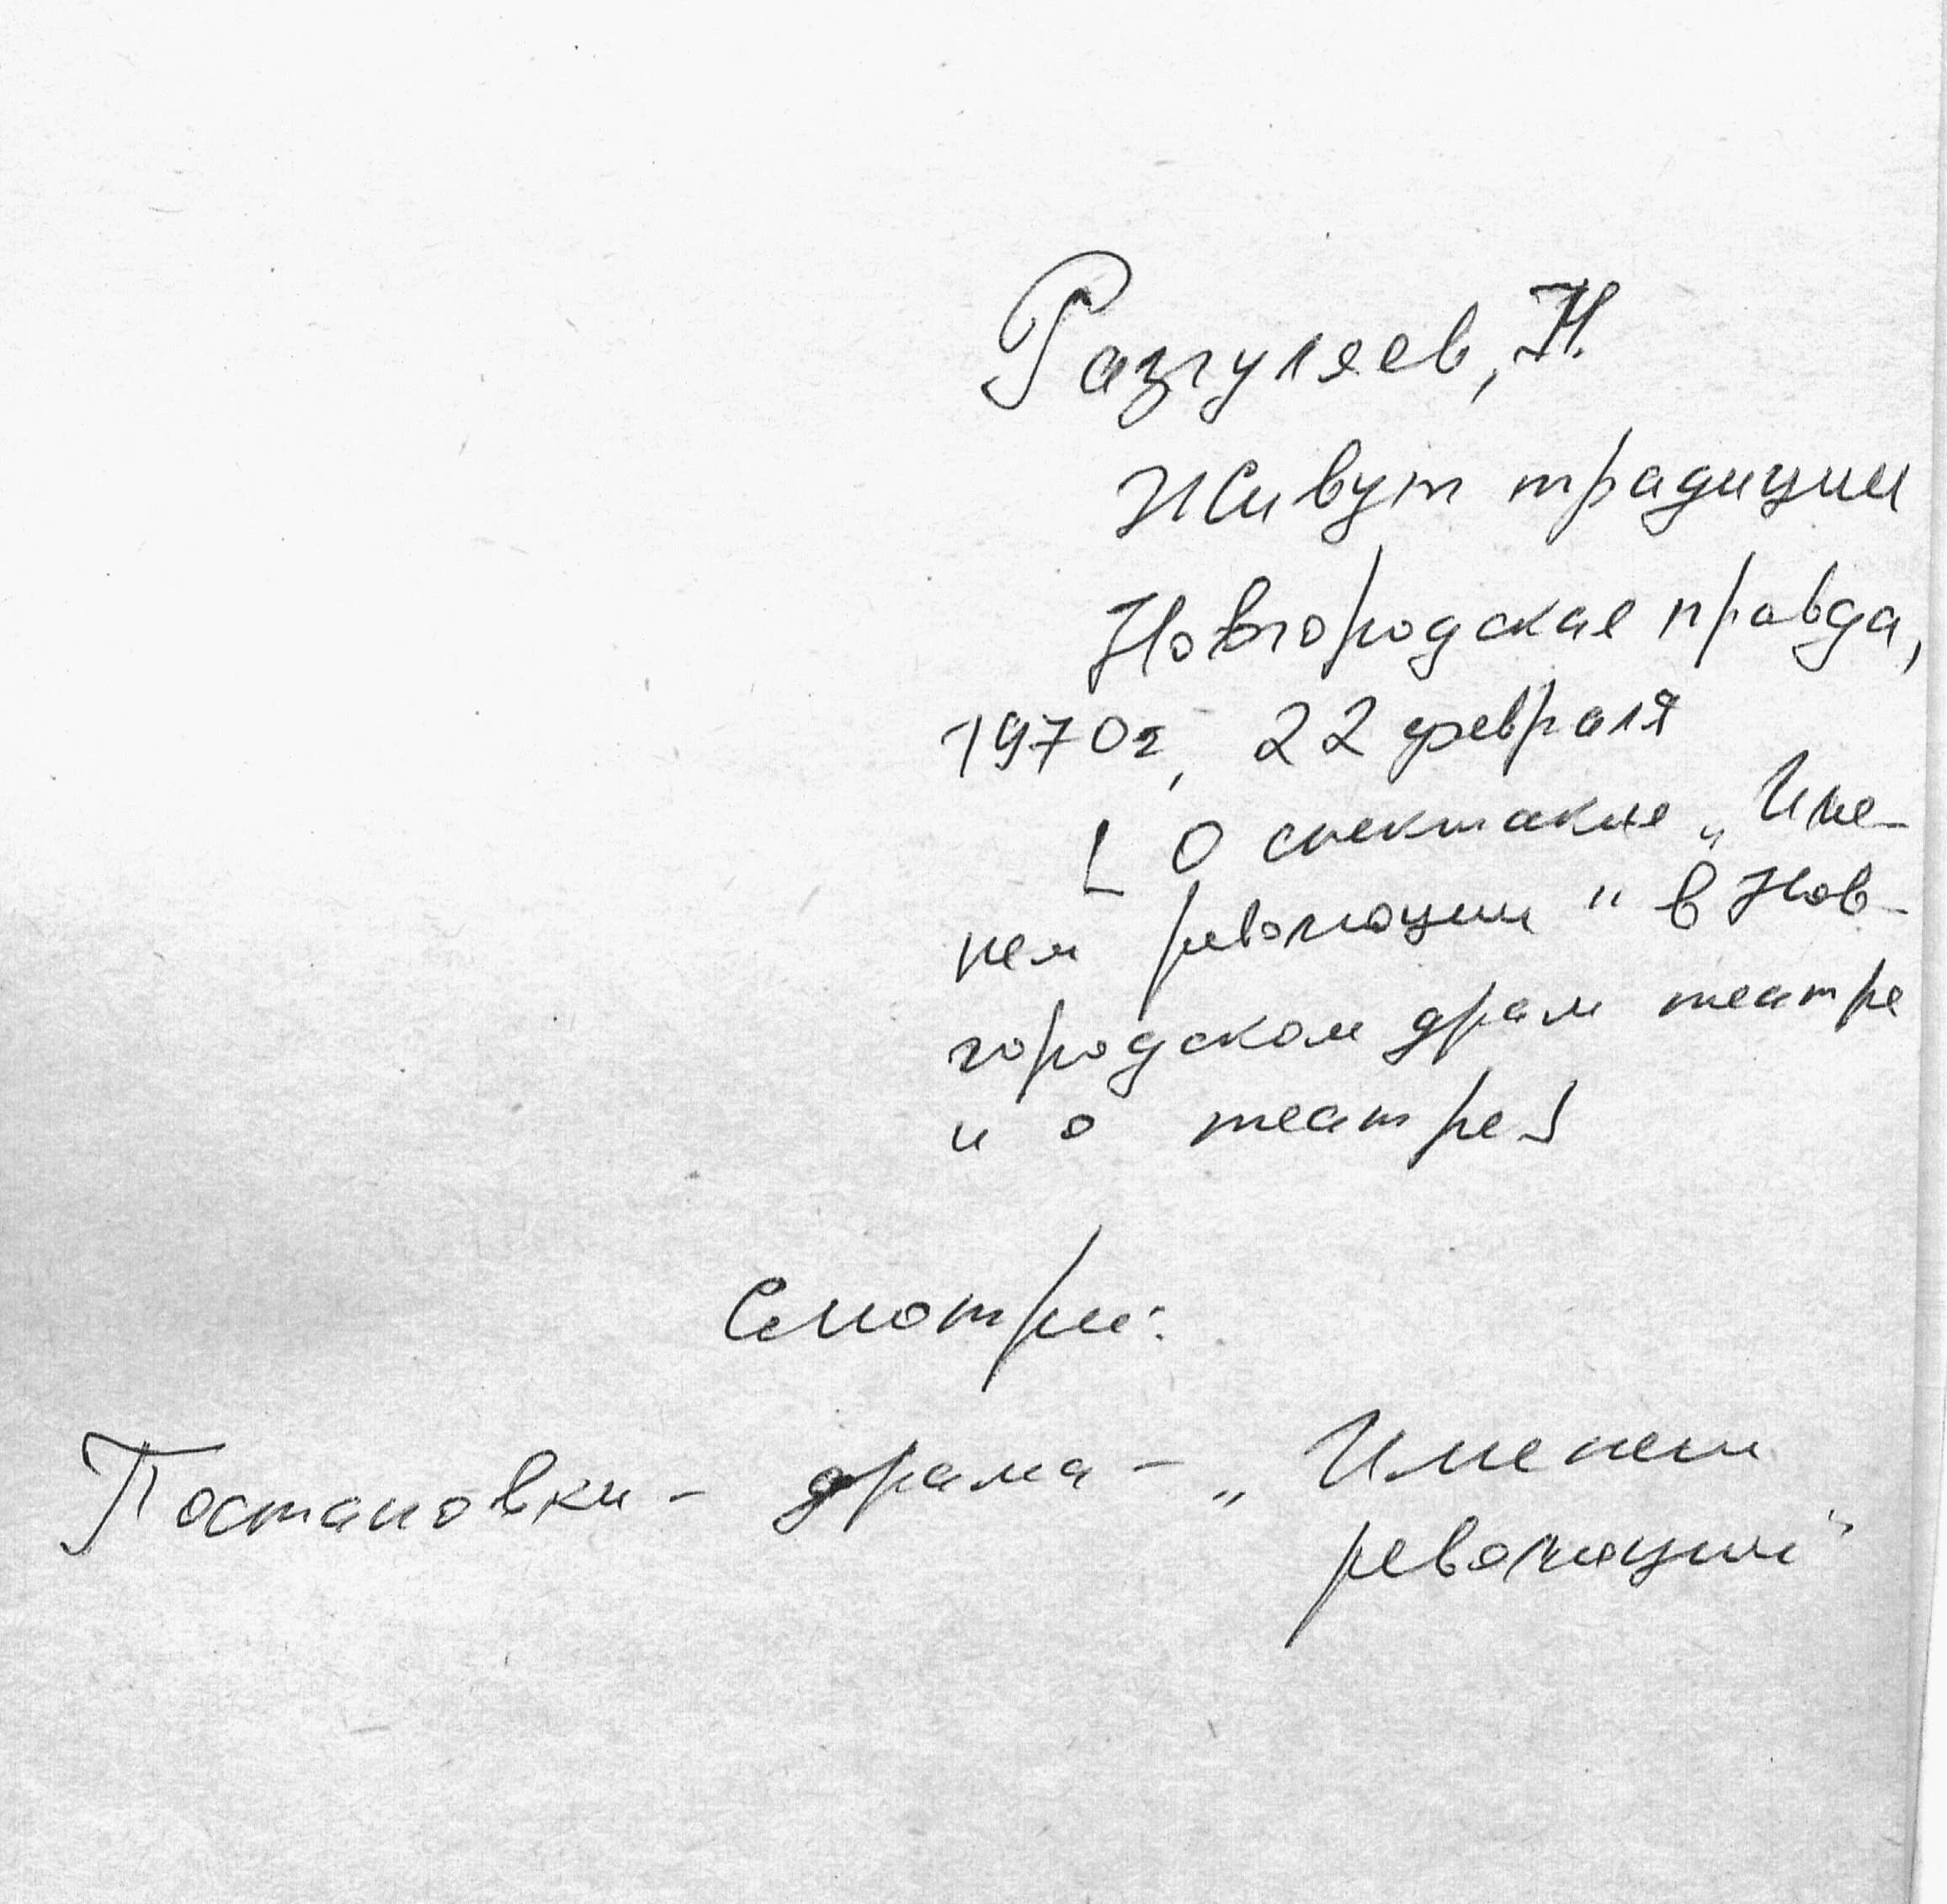 Разгуляев, Н.
Живут традиции
Новгородская правда,
1970г, 22 февраля
[ О спектакле „Име-
нем революции" в Нов-
городском драм театре
и о театре]
Смотри:
Постановки - драма - „Именем
революции"